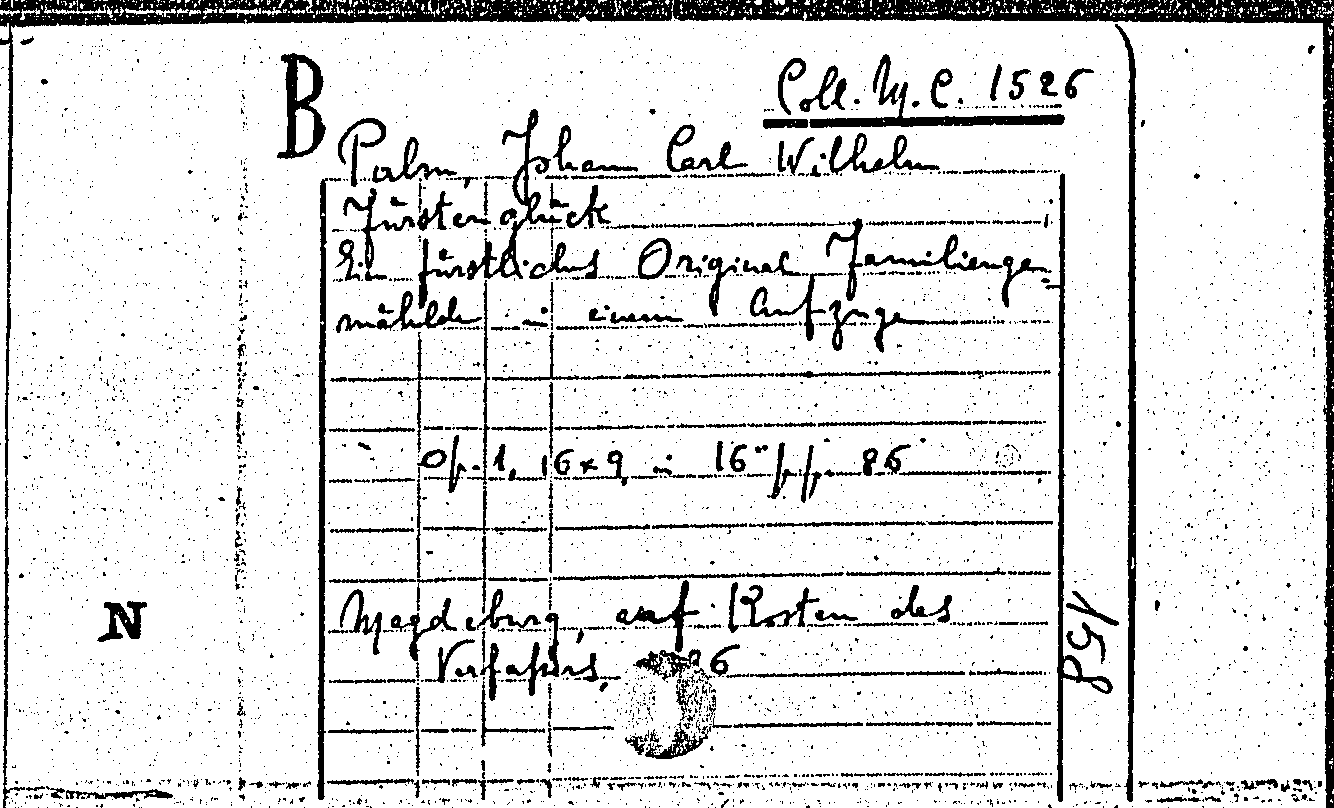 B
Coll. M. C. 1526
Palm, Johann Carl Wilhelm
Fürstenglück
Ein fürstliches Original Familienge=
mählde in einem Aufzuge
Op. 1, 16x9, in 16° pp. 86
N
Magdeburg, auf Kosten des
Verfaßers,
158